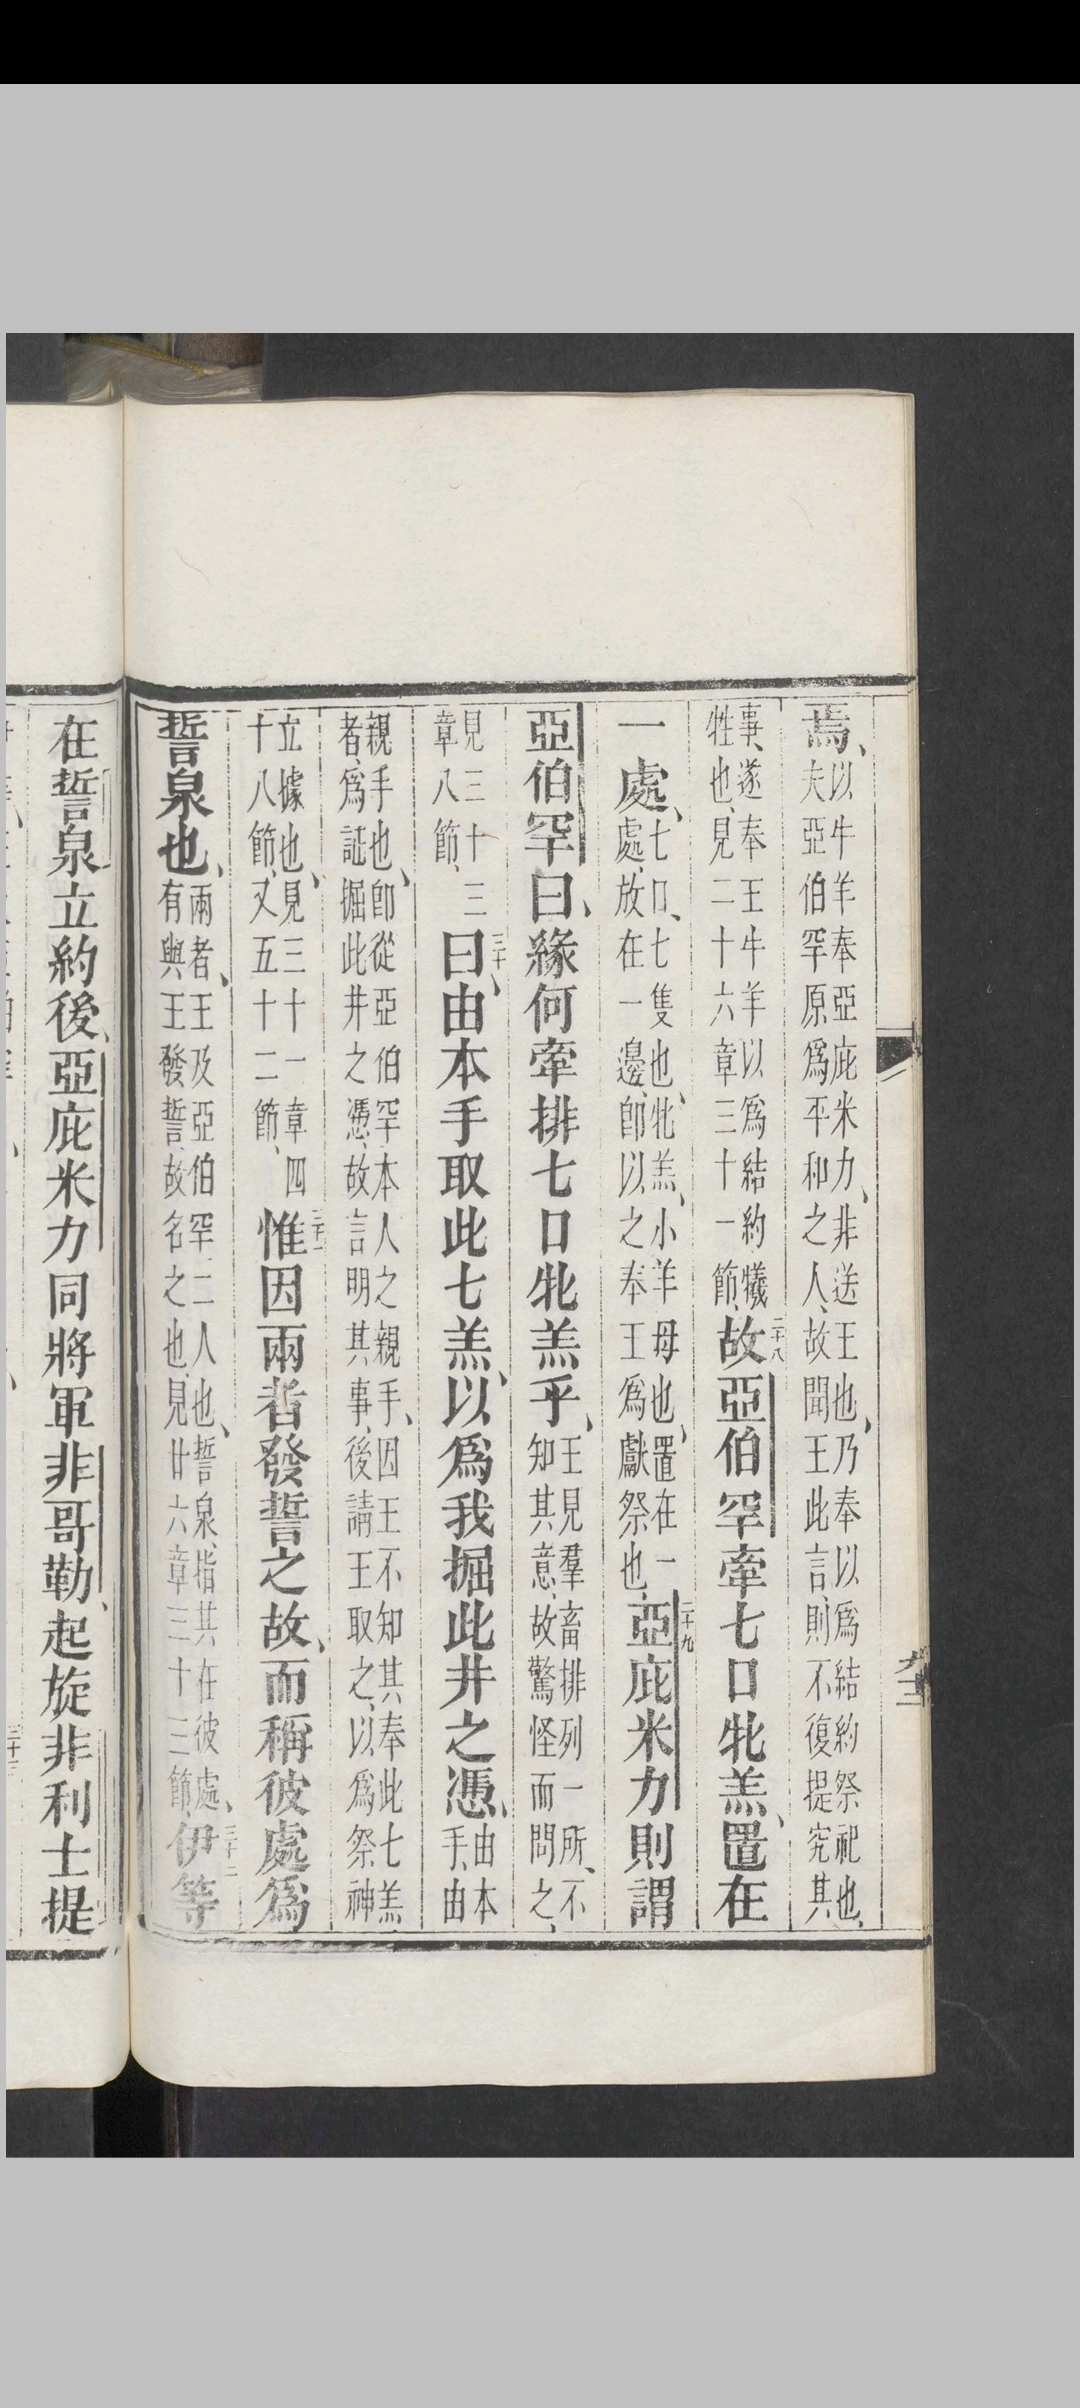 焉、以牛羊奉亞庇米力、非送王也、乃奉以爲結約祭祀也、夫亞伯罕原爲平和之人、故聞王此言、則不復提究其
事、遂奉王牛羊以爲結約犧牲也、見二十六章三十一節、二十八故亞伯罕牽七口牝羔、置在
一處、七口、七隻也、牝羔、小羊母也、置在一處、放在一邊、卽以之奉王爲獻祭也、二十九亞庇米力則謂
亞伯罕曰、緣何牽排七口牝羔乎、王見羣畜排列一所、不知其意、故驚怪而問之、
見三十三章八節、三十曰、由本手取此七羔、以爲我掘此井之憑、由本手、由
親手也、卽從亞伯罕本人之親手、因王不知其奉此七羔者、爲証掘此井之憑、故言明其事、後請王取之、以爲祭神
立據也、見三十一章四十八節、又五十二節、三十一惟因兩者發誓之故、而稱彼處爲
誓泉也、兩者、王及亞伯罕、二人也、誓泉、指其在彼處、有與王發誓、故名之也、見廿六章三十三節、三十二伊等
在誓泉立約後、亞庇米力同將軍非哥勒、起旋非利士提